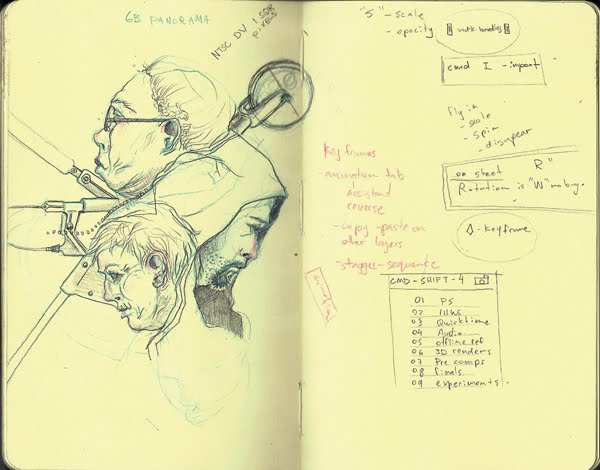 GE PANORAMA
NTSC DV 1 SQR
PIXELS
"S" - scale
- opacity
work bending
cmd I - import
Fly in
- scale
- spin
- disapear
Key frames
- animation tab
assistand
reverse
- copy - paste on
other layers
- stagger - sequence
on sheet "R"
Rotation is "W" maby.
- Keyframe
CMD - SHIFT - 4
01 PS
02 Illus
03 Quicktime
04 Audio
05 offline ref
06 3D renders
07 Pre comps
08 finals
09 experiments.